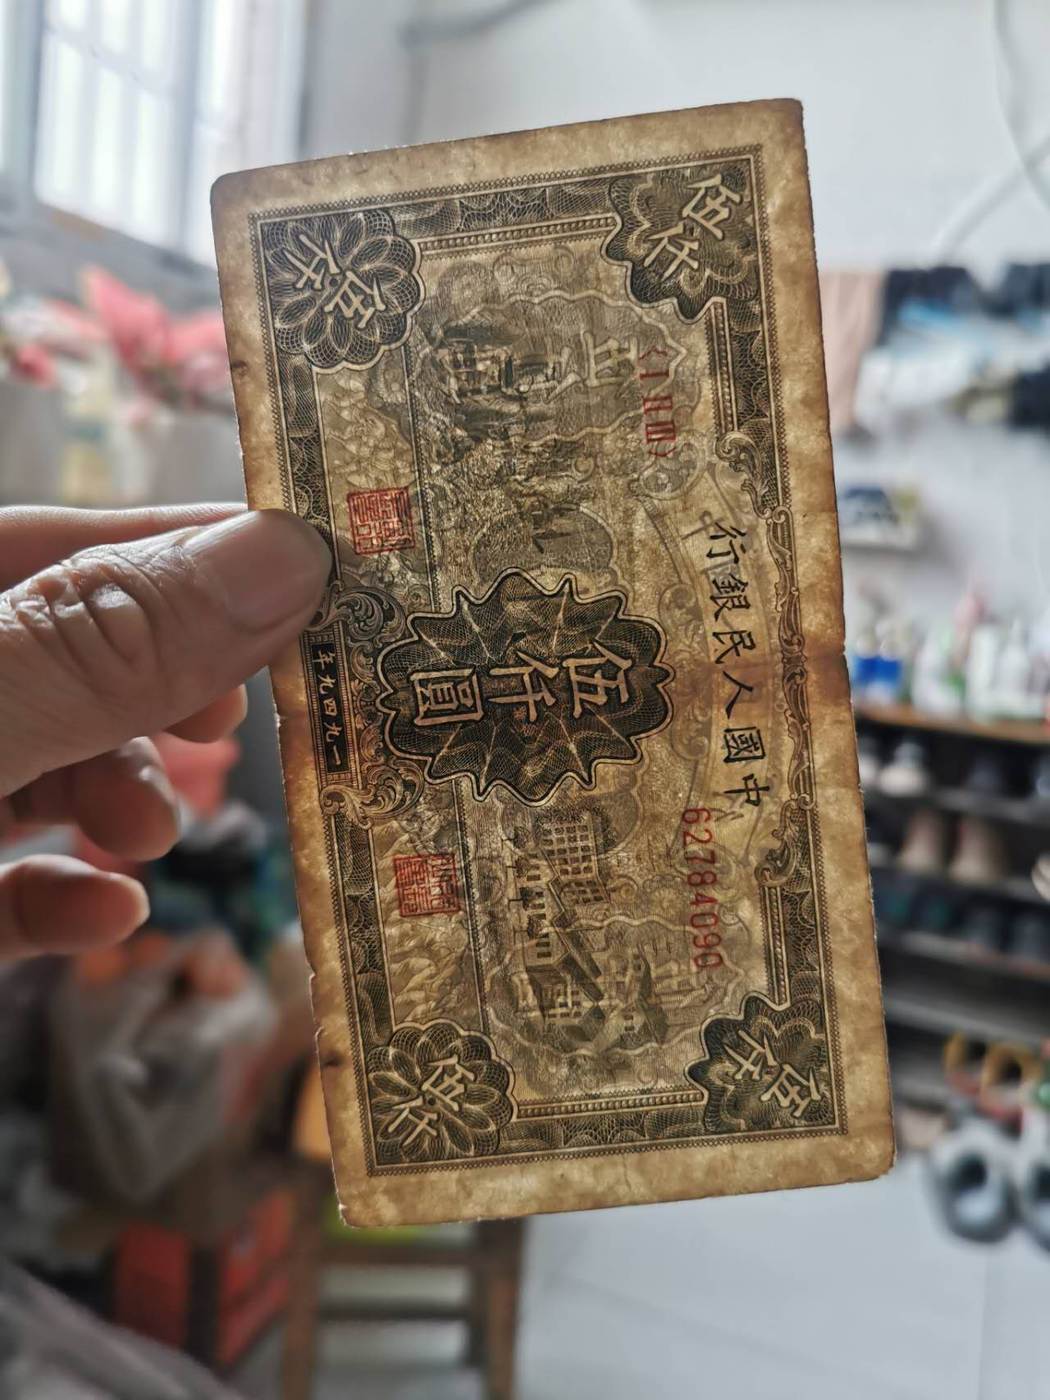 中國人民銀行
<ⅠⅡⅢ>
62784090
伍仟
伍仟
伍仟圓
伍仟
伍仟
一九四九年